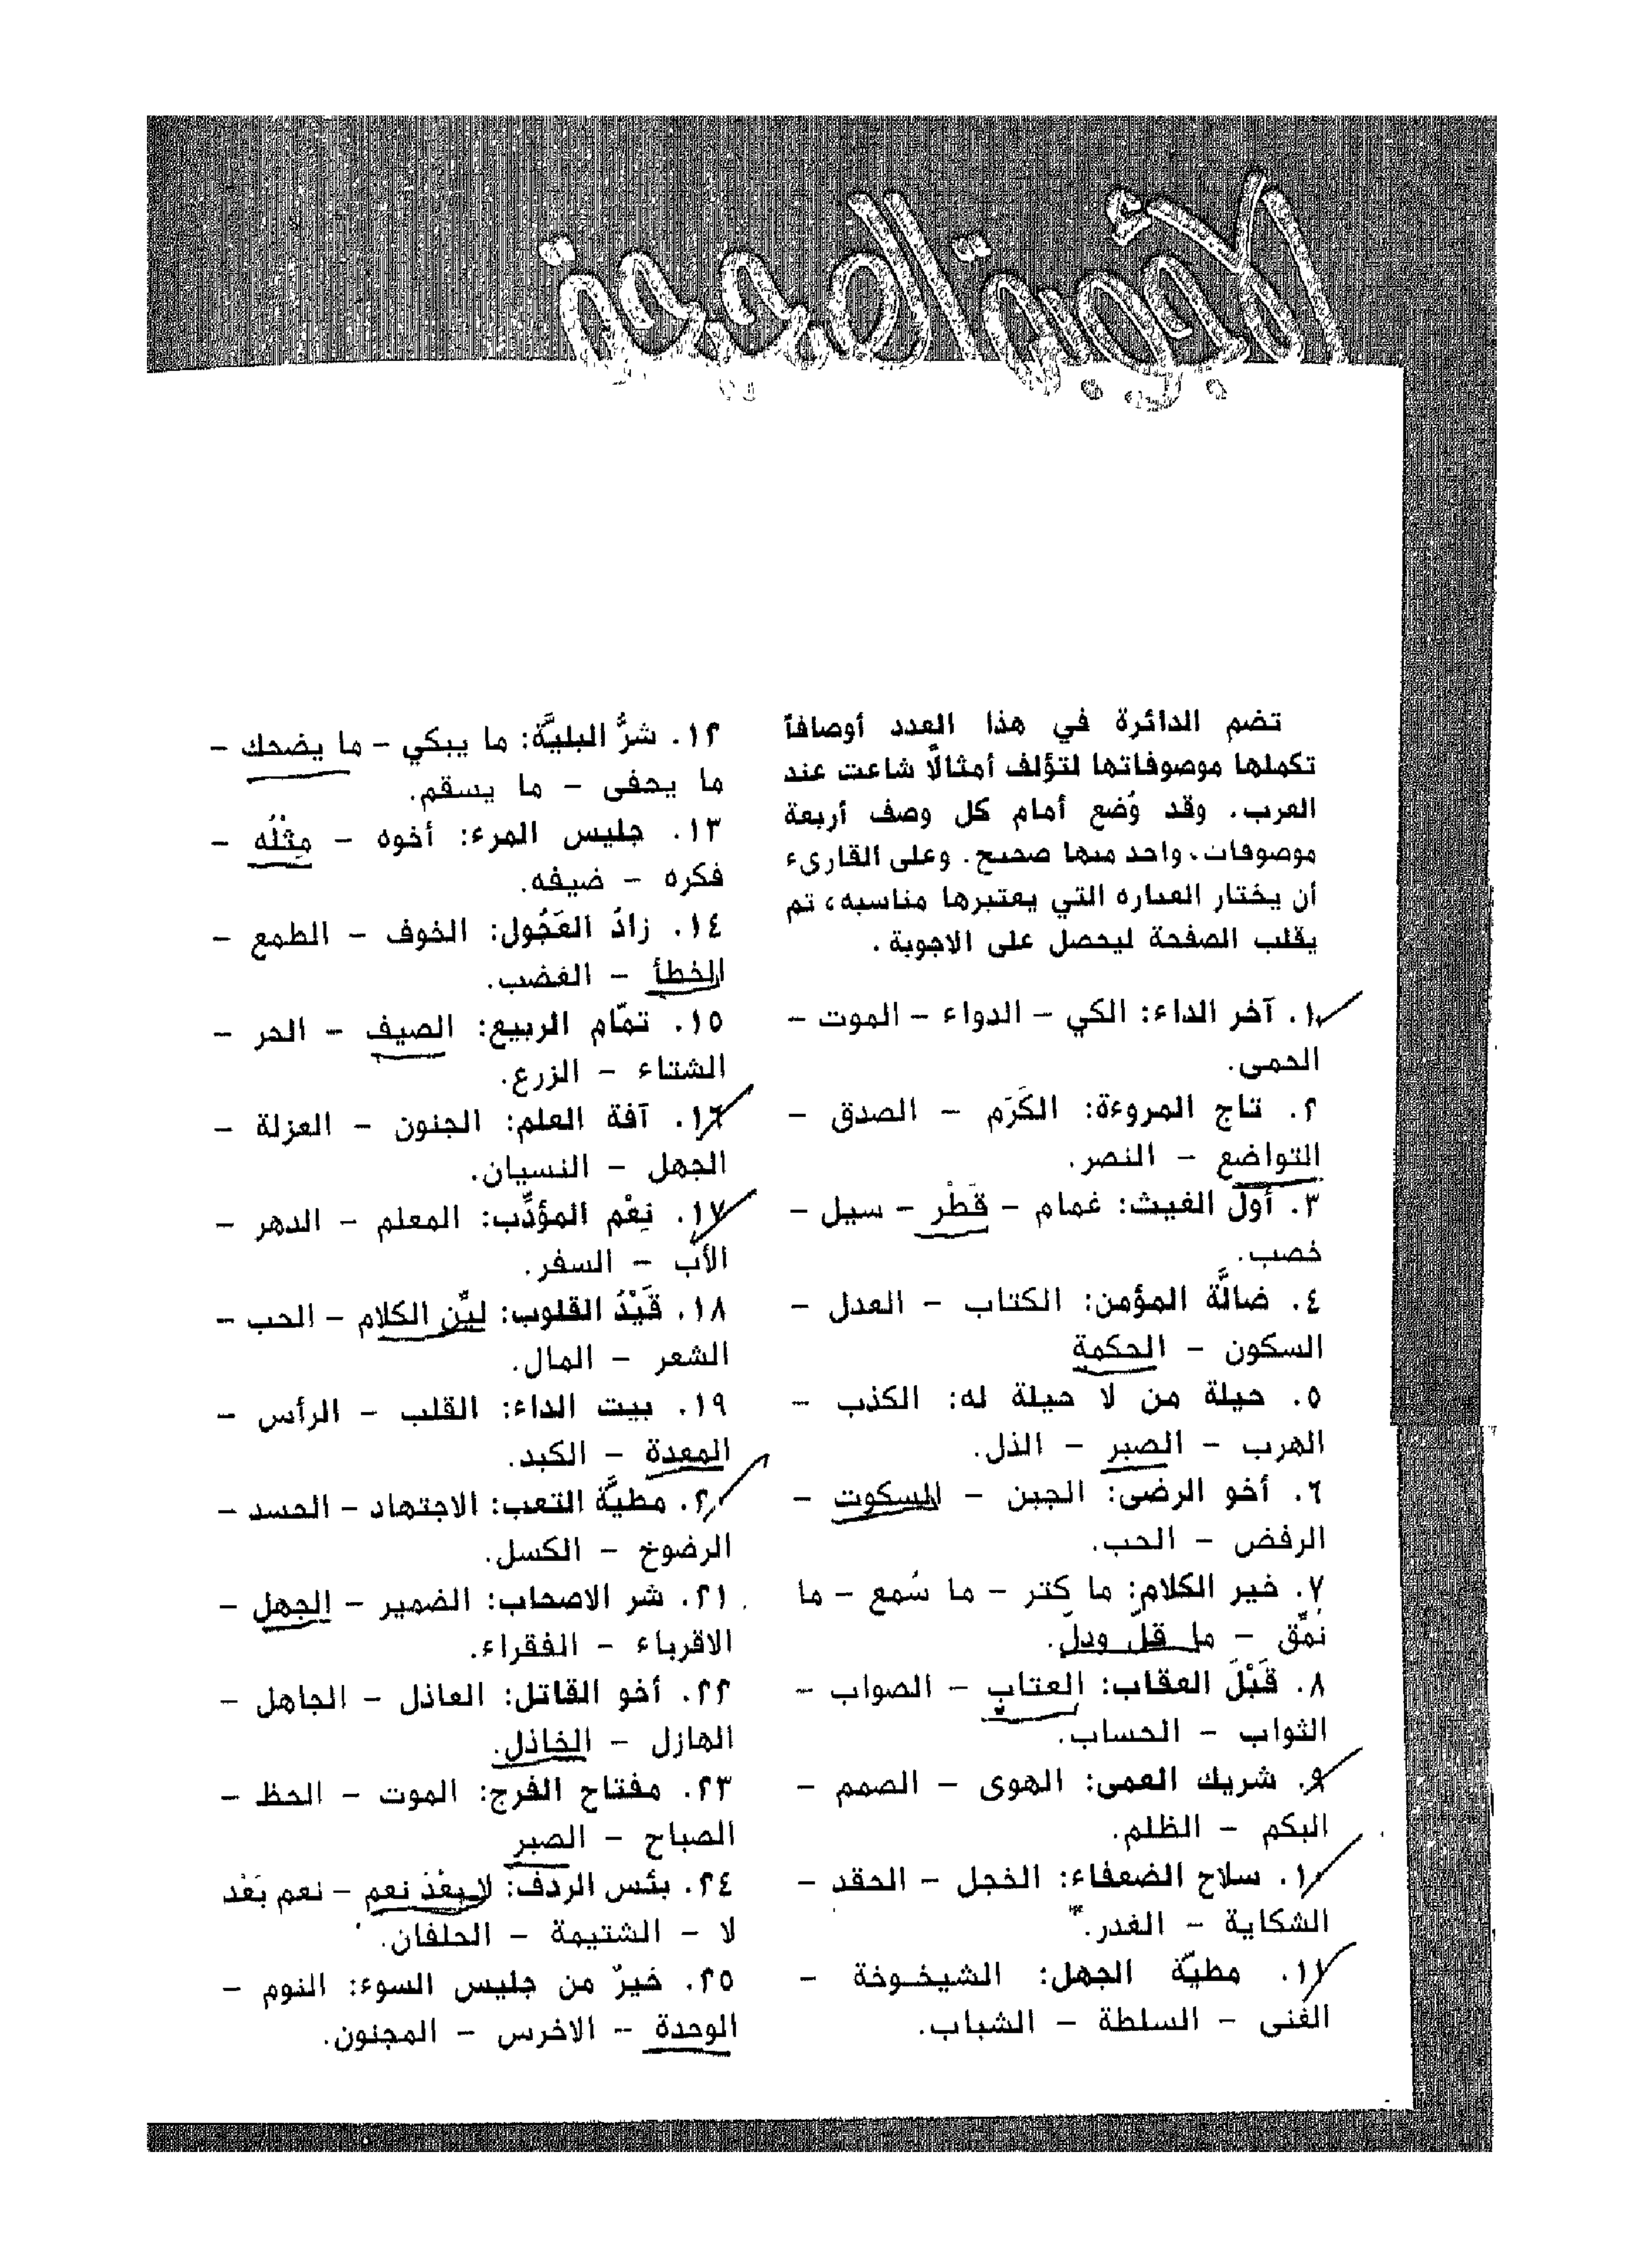 تضم الدائرة في هذا العدد أوصافاً
تكملها موصوفاتها لتؤلف أمثالًا شاعت عند
العرب. وقد وُضع أمام كل وصف أربعة
موصوفات، واحد منها صحيح. وعلى القارىء
أن يختار العباره التي يعتبرها مناسبه، ثم
يقلب الصفحة ليحصل على الاجوبة.
١. آخر الداء: الكي – الدواء – الموت –
الحمى.
٢. تاج المروءة: الكَرَم – الصدق –
التواضع – النصر.
٣. أول الغيث: غمام – قَطْر – سيل –
خصب.
٤. ضالَّة المؤمن: الكتاب – العدل –
السكون – الحكمة
٥. حيلة من لا حيلة له: الكذب –
الهرب – الصبر – الذل.
٦. أخو الرضى: الجبن – السكوت –
الرفض – الحب.
٧. خير الكلام: ما كثر – ما سُمع – ما
نُمِّق – ما قلّ ودلّ.
٨. قَبْلَ العقاب: العتاب – الصواب –
الثواب – الحساب.
٩. شريك العمى: الهوى – الصمم –
البكم – الظلم.
١٠. سلاح الضعفاء: الخجل – الحقد –
الشكاية – الغدر.
١١. مطيّة الجهل: الشيخوخة –
الغنى – السلطة – الشباب.
١٢. شرُّ البليَّة: ما يبكي – ما يضحك –
ما يحفى – ما يسقم.
١٣. جليس المرء: أخوه – مِثْلُه –
فكره – ضيفه.
١٤. زادُ العَجُول: الخوف – الطمع –
الخطأ – الغضب.
١٥. تمّام الربيع: الصيف – الحر –
الشتاء – الزرع.
١٦. آفة العلم: الجنون – العزلة –
الجهل – النسيان.
١٧. نِعْم المؤدِّب: المعلم – الدهر –
الأب – السفر.
١٨. قَيْدُ القلوب: ليِّن الكلام – الحب –
الشعر – المال.
١٩. بيت الداء: القلب – الرأس –
المعدة – الكبد.
٢٠. مطيَّة التعب: الاجتهاد – الحسد –
الرضوخ – الكسل.
٢١. شر الاصحاب: الضمير – الجهل –
الاقرباء – الفقراء.
٢٢. أخو القاتل: العاذل – الجاهل –
الهازل – الخاذل.
٢٣. مفتاح الفرج: الموت – الحظ –
الصباح – الصبر
٢٤. بئس الردف: لا بعْدَ نعم – نعم بَعْد
لا – الشتيمة – الحلفان.
٢٥. خيرٌ من جليس السوء: النوم –
الوحدة – الاخرس – المجنون.